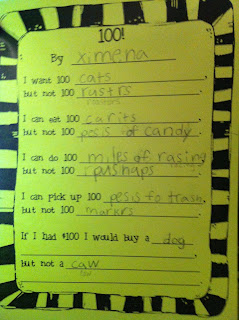 100!
By ximena
I want 100 cats,
but not 100 rustrs.
roosters
I can eat 100 carits,
but not 100 pesis of candy.
I can do 100 miles of rasing,
but not 100 pushaps.
I can pick up 100 pesis fo trash,
but not 100 markrs.
If I had $100 I would buy a dog,
but not a caw.
cow